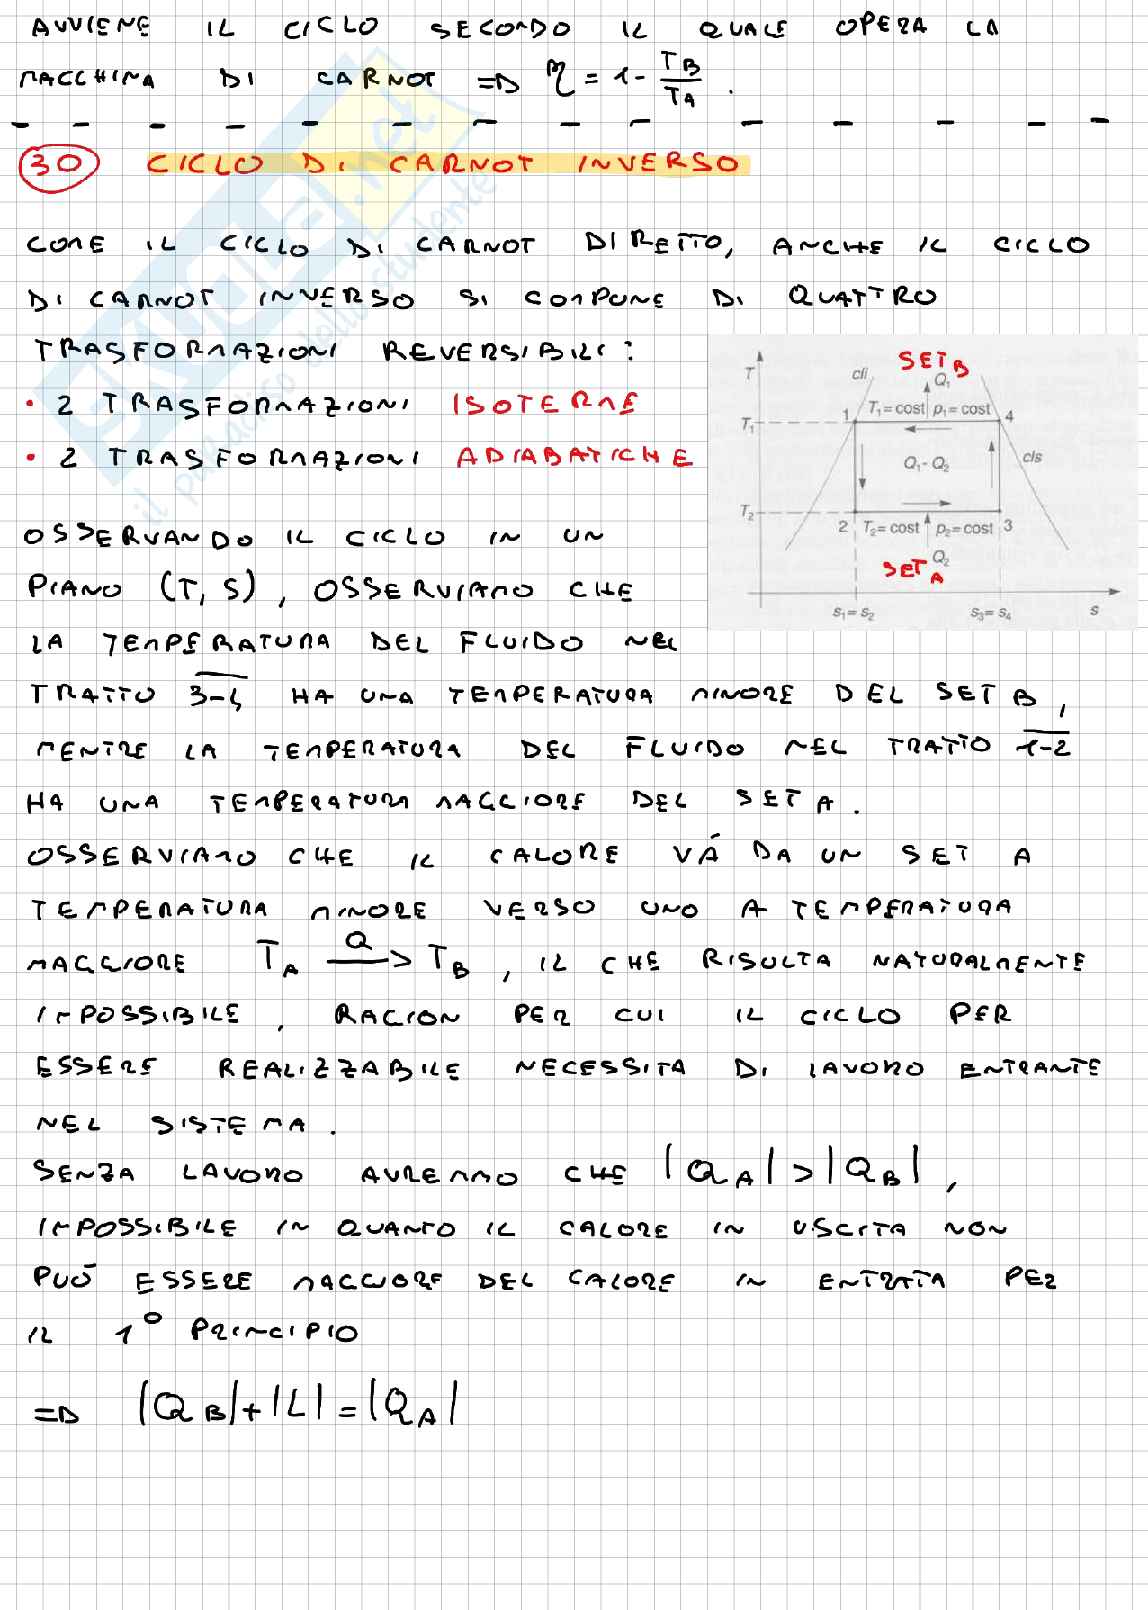 AVVIENE IL CICLO SECONDO IL QUALE OPERA LA
MACCHINA DI CARNOT => η = 1 - TB/TA .
30 CICLO DI CARNOT INVERSO
COME IL CICLO DI CARNOT DIRETTO, ANCHE IL CICLO
DI CARNOT INVERSO SI COMPONE DI QUATTRO
TRASFORMAZIONI REVERSIBILI:
• 2 TRASFORMAZIONI ISOTERME
• 2 TRASFORMAZIONI ADIABATICHE
OSSERVANDO IL CICLO IN UN
PIANO (T, S), OSSERVIAMO CHE
LA TEMPERATURA DEL FLUIDO NEL
T cli SET B Q1
T1 = cost p1 = cost
T1 1 4
Q1 - Q2 cls
T2 2 T2 = cost p2 = cost 3
SET A Q2
s1 = s2 s3 = s4 s
TRATTO 3-4 HA UNA TEMPERATURA MINORE DEL SET B,
MENTRE LA TEMPERATURA DEL FLUIDO NEL TRATTO 1-2
HA UNA TEMPERATURA MAGGIORE DEL SET A.
OSSERVIAMO CHE IL CALORE VÁ DA UN SET A
TEMPERATURA MINORE VERSO UNO A TEMPERATURA
MAGGIORE TA Q—> TB, IL CHE RISULTA NATURALMENTE
IMPOSSIBILE, RAGION PER CUI IL CICLO PER
ESSERE REALIZZABILE NECESSITA DI LAVORO ENTRANTE
NEL SISTEMA.
SENZA LAVORO AVREMMO CHE |QA| > |QB|,
IMPOSSIBILE IN QUANTO IL CALORE IN USCITA NON
PUÓ ESSERE MAGGIORE DEL CALORE IN ENTRATA PER
IL 1° PRINCIPIO
=> |QB| + |L| = |QA|
SKUOLA.net
il paradiso dello studente